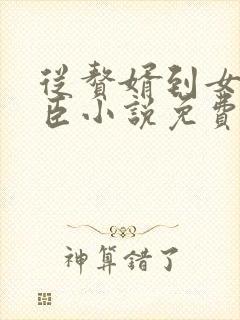 從贅婿到女
臣小説免費
神算錯了